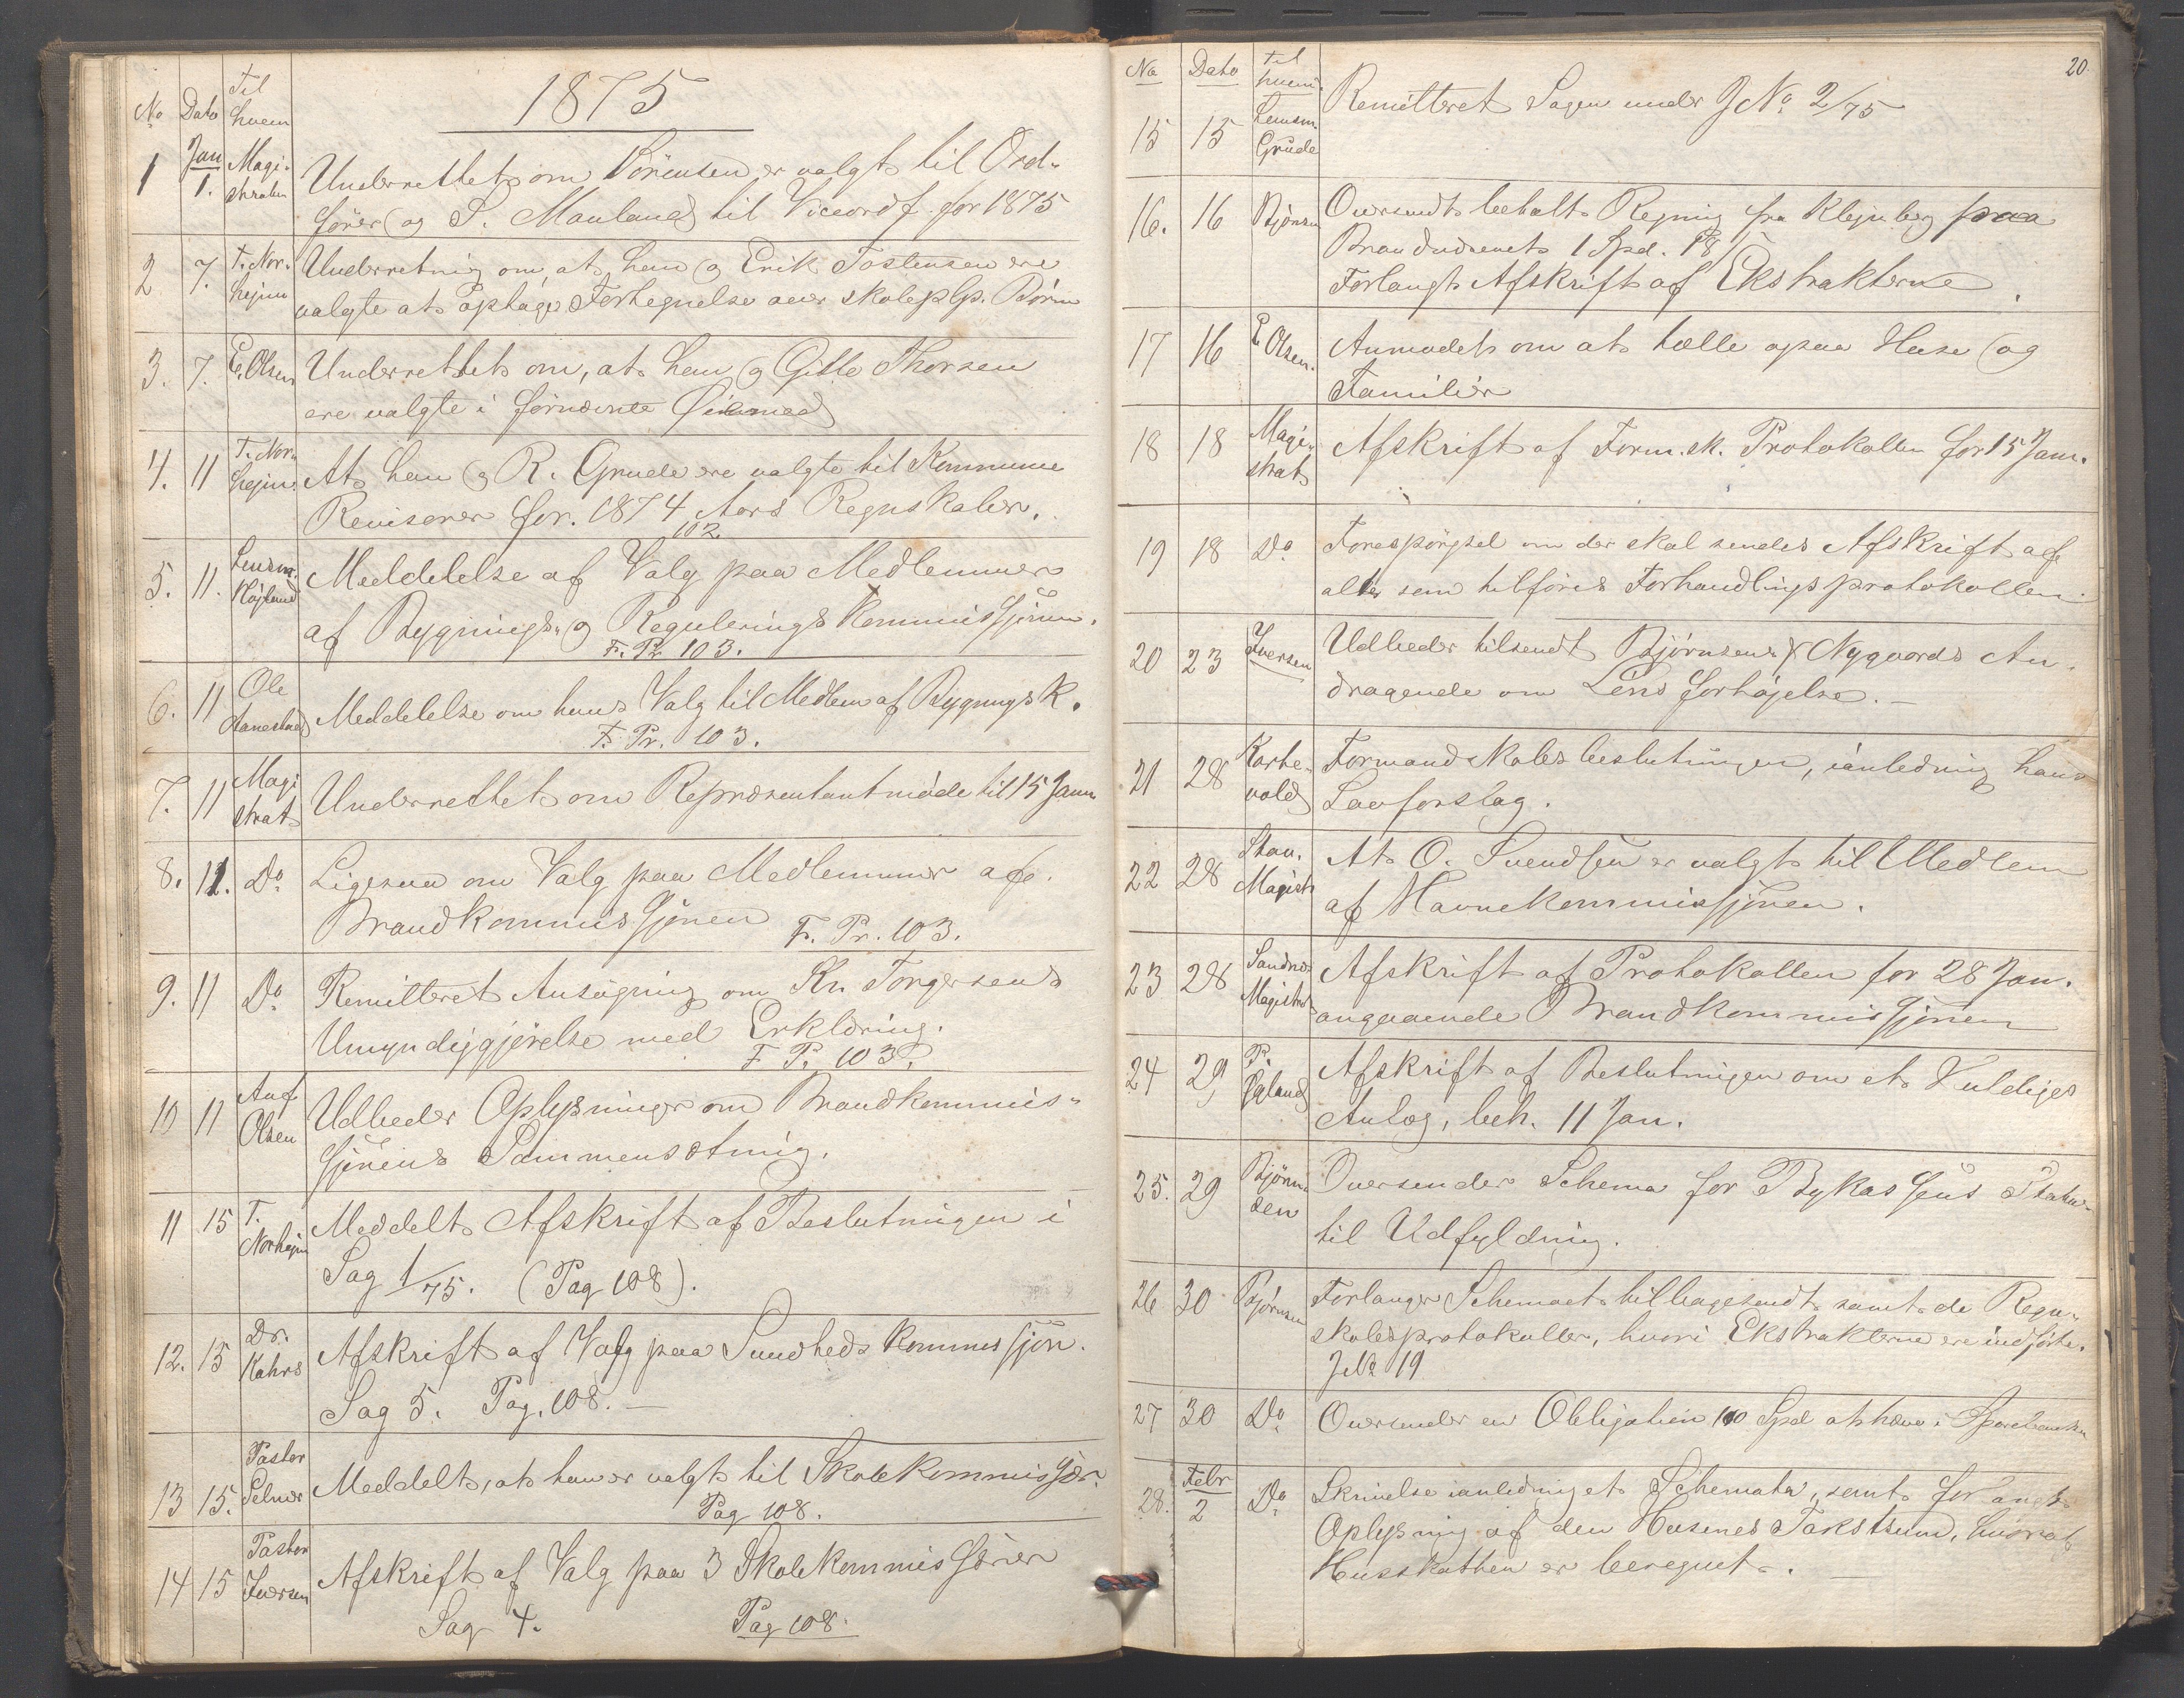 1875
No Dato Til hvem
1 Jan 1. Magistraten Underrettet om Sörensen er valgt til Ord-
förer og S. Mauland til Viceordf. for 1875
2 7. T. Norhejm Underretning om, at han og Erik Tostensen ere
valgte at optage Fortegnelse over skoleplp. Börn
3. 7. E. Olsen Underrettet om, at han og Gitle Thorsen
ere valgte i fornævnte Øiemed
4. 11 T. Norhejm At han og R. Grude ere valgte til Kommune
Revisorer for 1874 Aars Regnskaber.
102
5. 11. Lensm. Höjland Meddelelse af Valg paa Medlemmer
af Bygnings- og Regulerings Kommissjonen.
F. Pr. 103.
6. 11 Ole Aanestad Meddelelse om hans Valg til Medlem af Bygnings K.
F. Pr. 103.
7. 11 Magistrat Underrettet om Repræsentantmöde til 15 Janu
8. 11. Do Ligesaa om Valg paa Medlemmer af
Brandkommissjonen F. Pr. 103.
9. 11 Do Remitteret Ansögning om Kn. Torgersens
Umyndiggjörelse med Erklæring.
F. P. 103.
10 11 Auf Olsen Udbeder Oplysninger om Brandkommis-
sjonens Sammensætning.
11 15 T. Norhejm Meddelt Afskrift af Beslutningen i
Sag 1/75. (Pag 108).
12. 15 Dr. Kahrs Afskrift af Valg paa Sundheds Kommissjon.
Sag 5. Pag. 108. —
13 15. Pastor Selmer Meddelt, at han er valgt til Skolekommissær
Pag 108.
14 15 Pastor Iversen Afskrift af Valg paa 3 Skolekommissærer
Sag 4. Pag 108.
20.
No Dato til hvem
15 15 Lensm. Grude Remitteret Sagen under J No. 2/75
16. 16 Björnsen Oversendt betalt Regning fra Klejnberg paa
Brandvæsenet 1 Spd. 18 s
Forlangt Afskrift af Ekstrakterne.
17 16 E Olsen. Anmodet om at tælle opaa Huse og
Familier
18 18 Magistrat Afskrift af Form.sk. Protokollen for 15 Jan.
19 18 Do Forespörgsel om der skal sendes Afskrift af
alt som tilföres Forhandlingsprotokollen.
20 23 Iversen Udbeder tilsendt Björnsens & Nygaards An-
dragende om Löns forhöjelse. —
21 28 Kartevold Formandskabsbeslutningen, ianledning hans
Lovforslag.
22 28 Stav. Magist At O. Svendsen er valgt til Medlem
af Havnekommissjonen.
23 28 Sandnæs Magistrat Afskrift af Protokollen for 28 Jan.
angaaende Brandkommissjonen
24 29 P. Igland Afskrift af Beslutningen om et Kuldiges
Anlæg, beh. 11 Jan.
25. 29 Björnsen Oversender Schema for Bykassens Status
til Udfyldning.
26 30 Björnsen Forlanger Schemaet tilbagesendt samt de Regn-
skabsprotokoller, hvori Ekstrakterne ere indförte.
J No 19
27 30 Do Oversender en Obligation 100 Spd at hæve i Sparebanken
28. Febr 2 Do Skrivelse ianledning et Schemata, samt forlangt
Oplysning af den Husenes Takstsum, hvorat
Husskatten er beregnet. —